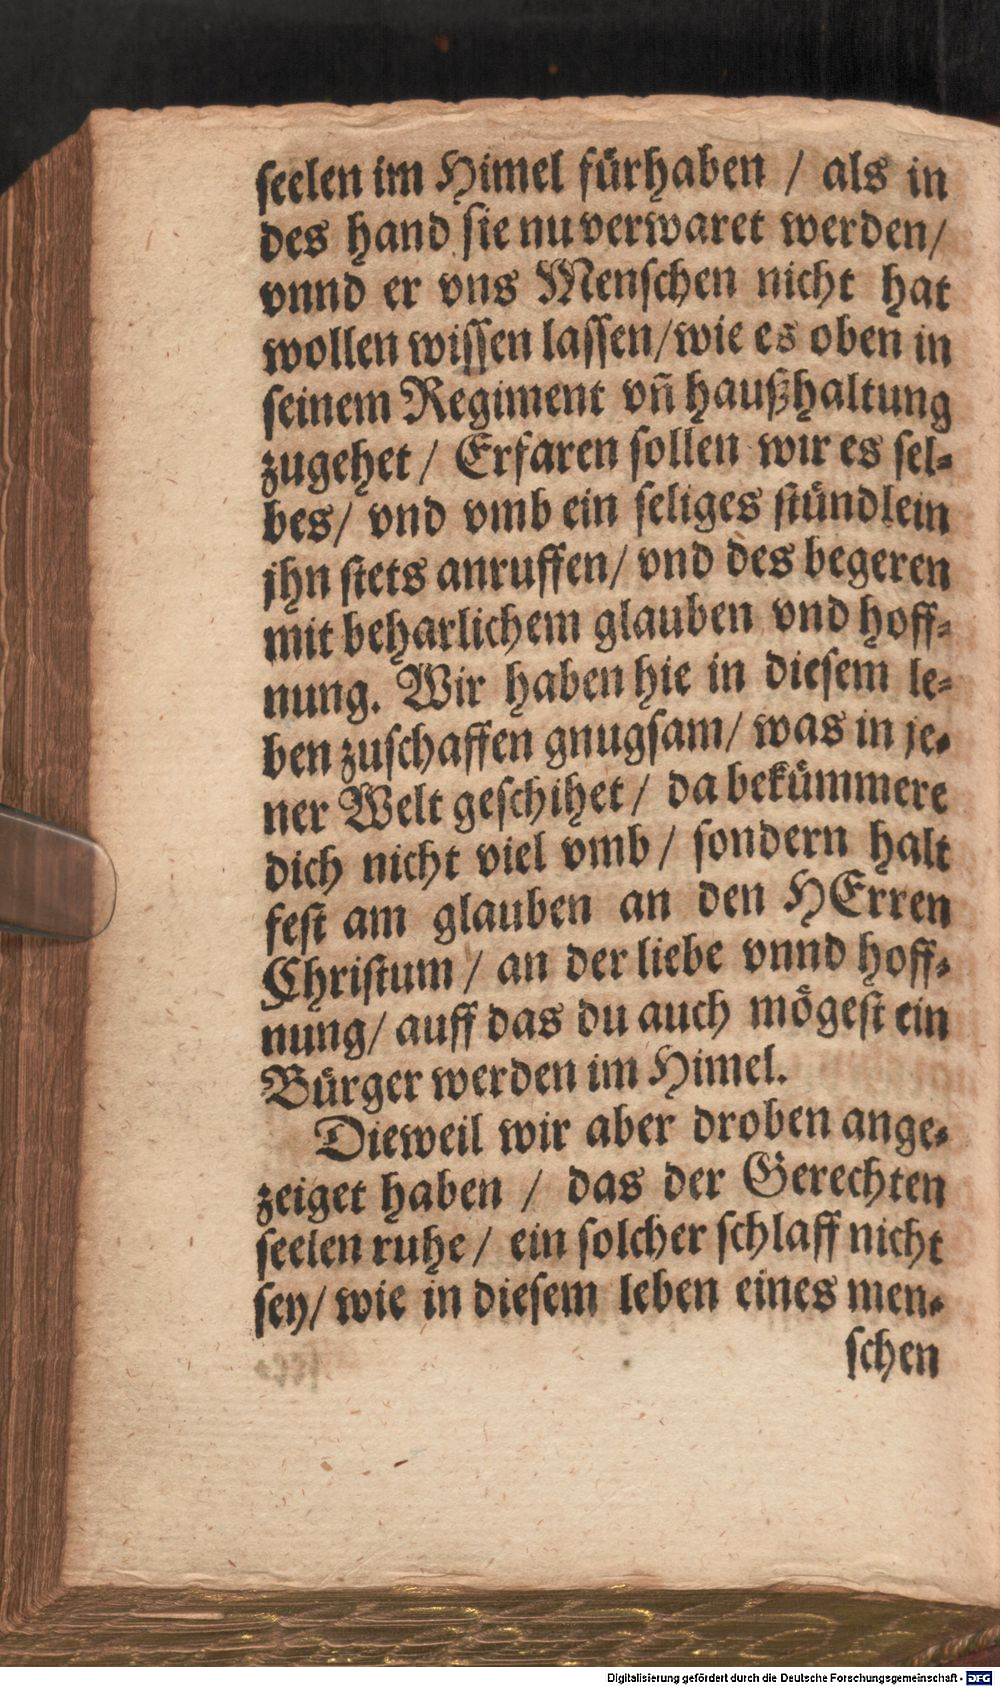 seelen im Himel fürhaben / als in
des hand sie nu verwaret werden/
vnnd er vns Menschen nicht hat
wollen wissen lassen/wie es oben in
seinem Regiment vn̄ haußhaltung
zugehet / Erfaren sollen wir es sel-
bes/ vnd vmb ein seliges stündlein
jhn stets anruffen/ vnd des begeren
mit beharlichem glauben vnd hoff-
nung. Wir haben hie in diesem le-
ben zuschaffen gnugsam/ was in je-
ner Welt geschihet / da bekümmere
dich nicht viel vmb / sondern halt
fest am glauben an den HErren
Christum / an der liebe vnnd hoff-
nung/ auff das du auch mögest ein
Bürger werden im Himel.
Dieweil wir aber droben ange-
zeiget haben / das der Gerechten
seelen ruhe / ein solcher schlaff nicht
sey/ wie in diesem leben eines men-
schen
Digitalisierung gefördert durch die Deutsche Forschungsgemeinschaft - DFG